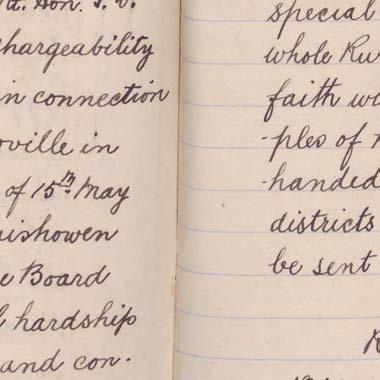 Rt. Hon. S. D.
chargeability
in connection
oville in
of 15th May
nishowen
e Board
l hardship
and con-
special
whole Ru
faith wo
-ples of
-handed
districts
be sent